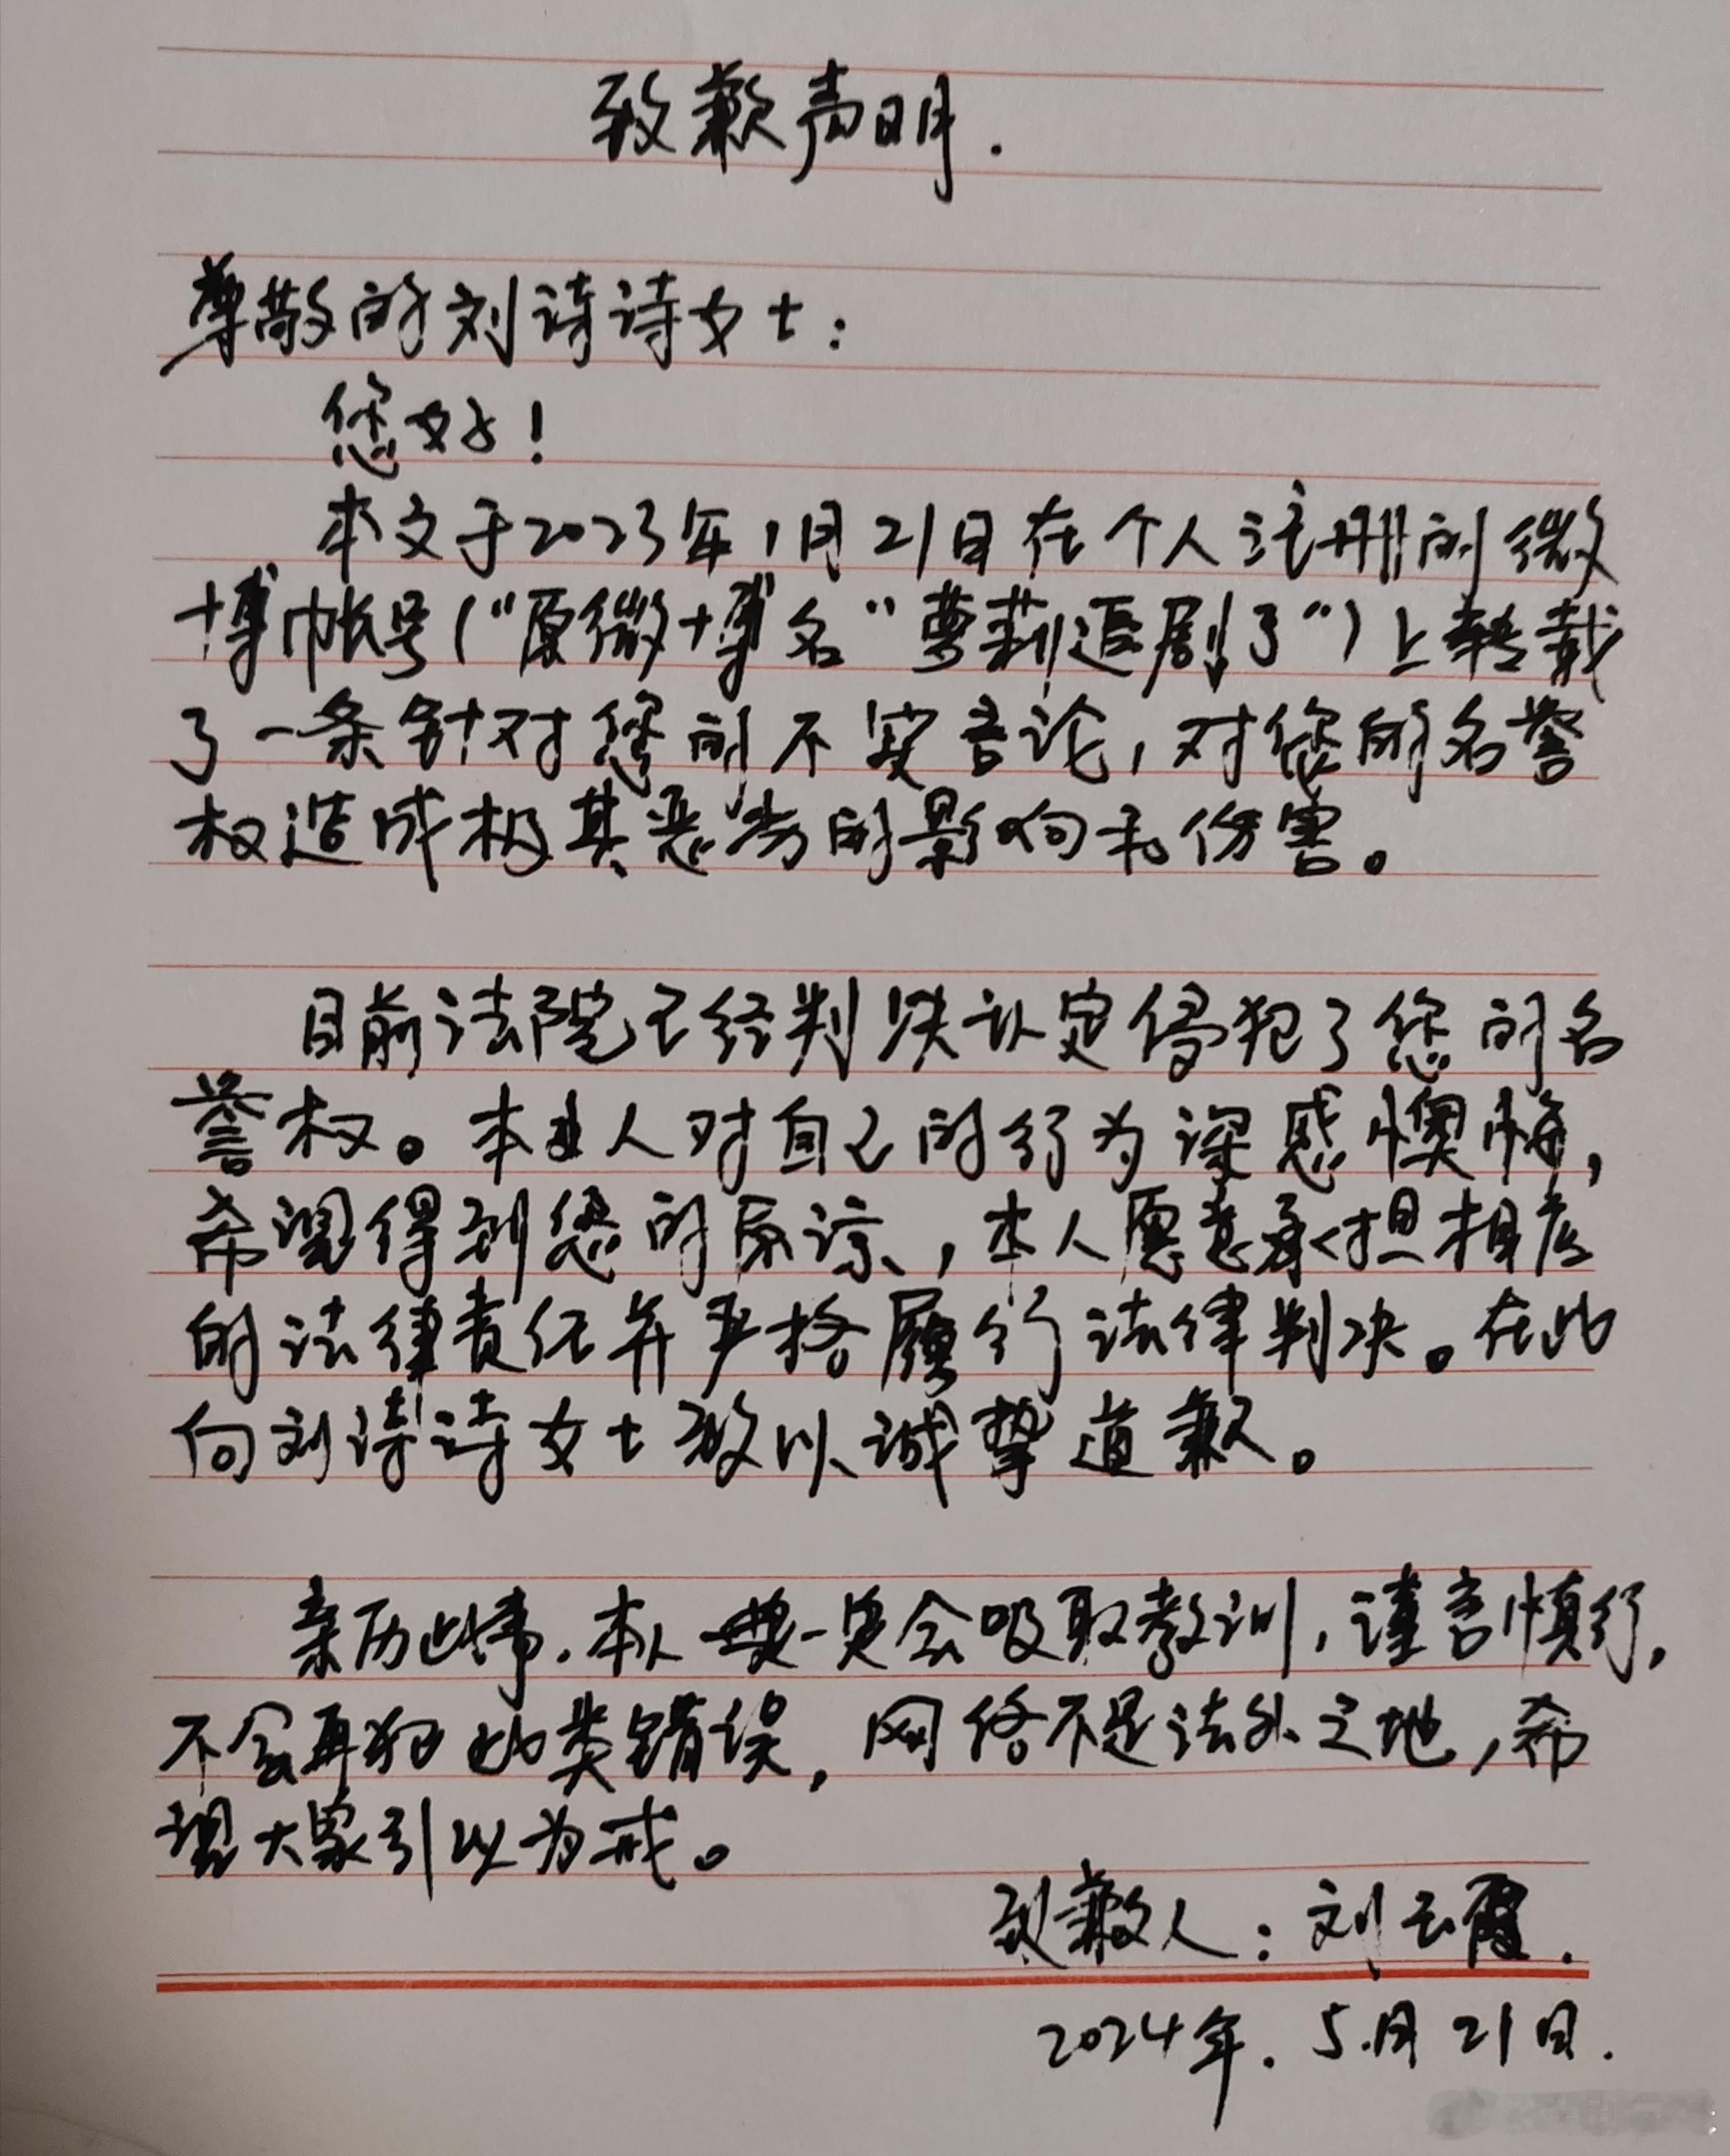 致歉声明.
尊敬的刘诗诗女士:
您好!
本文于2023年1月21日在个人注册的微
博帐号("原微博名"萝莉追剧了")上转载
了一条针对您的不实言论,对您的名誉
权造成极其恶劣的影响和伤害。
目前法院已经判决认定侵犯了您的名
誉权。本人对自己的行为深感懊悔,
希望得到您的原谅,本人愿意承担相应
的法律责任并严格履行法律判决。在此
向刘诗诗女士致以诚挚道歉。
亲历此事.本人一定会吸取教训,谨言慎行,
不会再犯此类错误,网络不是法外之地,希
望大家引以为戒。
致歉人:刘云霞.
2024年.5月21日.